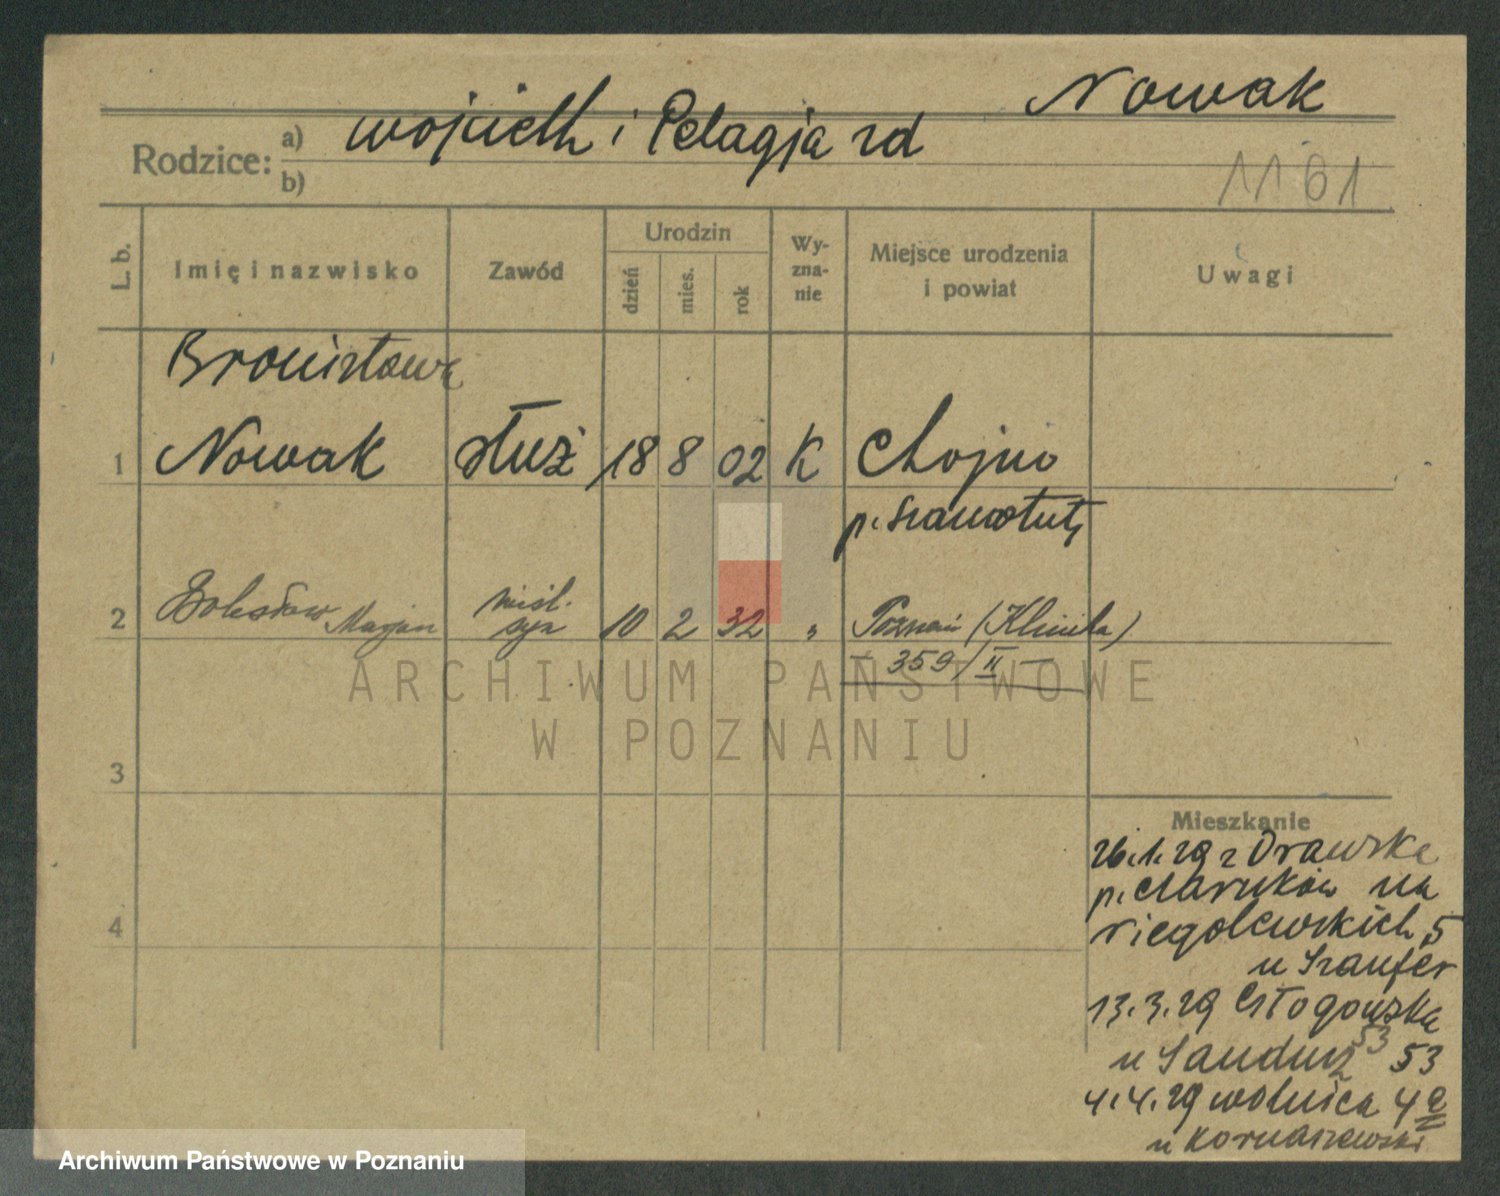 Nowak
Rodzice: a) b) Wojciech i Pelagja zd
1101
L. b.
Imię i nazwisko
Zawód
Urodzin
dzień
mies.
rok
Wy-
zna-
nie
Miejsce urodzenia
i powiat
Uwagi
Bronisława
1 Nowak służ 18 8 02 K Chojno
p. Szamotuły
2 Bolesław Marjan nieśl. syn 10 2 32 " Poznań (Klinika)
359/II
3
4
Mieszkanie
26.1.29 z Drawska
p. Czarnków na
Niegolewskich 5
u Szanfer
13.3.29 Głogowska
53
u Sandurz 53
4.4.29 Wolnica 4a
u Kornaszewski
ARCHIWUM PAŃSTWOWE
W POZNANIU
Archiwum Państwowe w Poznaniu